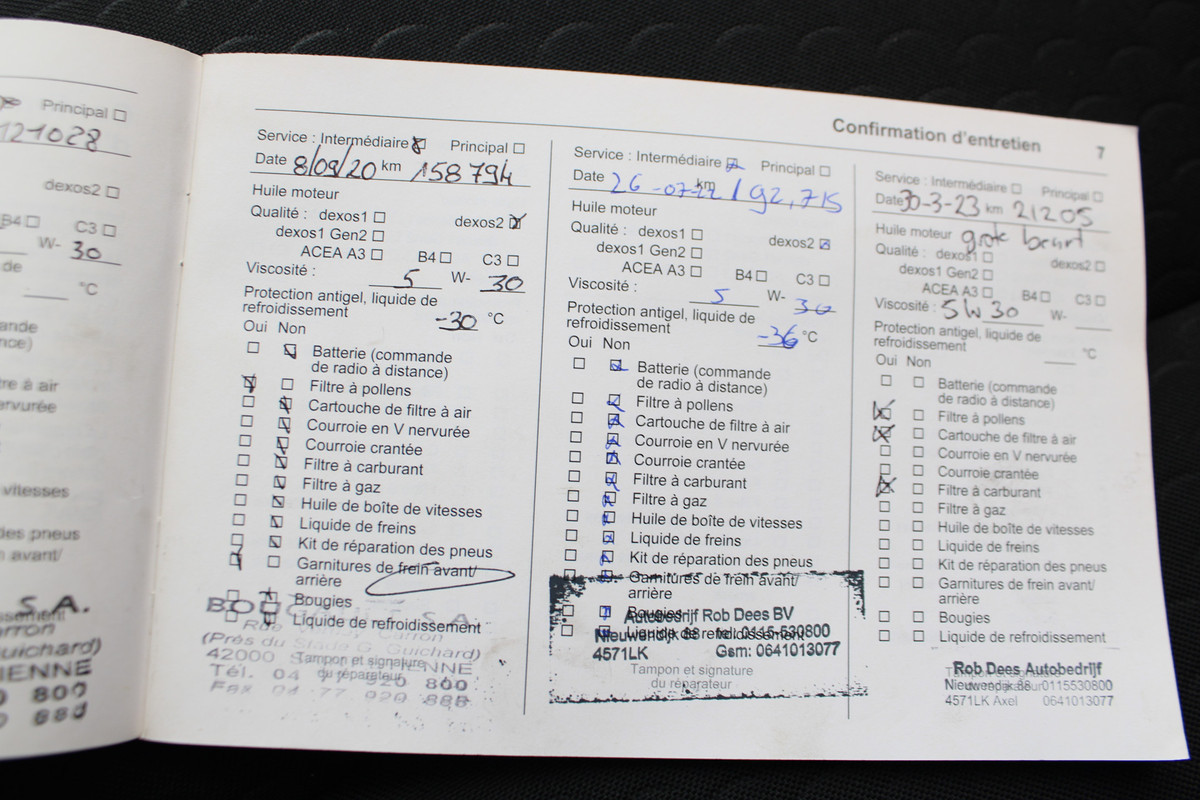 Principal
121028
dexos2
B4 C3
W- 30
de
°C
re à air
ervurée
vitesses
des pneus
avant/
S.A.
rron
uichard)
IENNE
800
Confirmation d'entretien 7
Service : Intermédiaire Principal
Date 8/09/20 km 158794
Huile moteur
Qualité : dexos1 dexos2
dexos1 Gen2
ACEA A3 B4 C3
Viscosité : 5 W- 30
Protection antigel, liquide de
refroidissement -30 °C
Oui Non
Batterie (commande
de radio à distance)
Filtre à pollens
Cartouche de filtre à air
Courroie en V nervurée
Courroie crantée
Filtre à carburant
Filtre à gaz
Huile de boîte de vitesses
Liquide de freins
Kit de réparation des pneus
Garnitures de frein avant/
arrière
Bougies
Liquide de refroidissement
S.A.
Carron
(Près du Stade G. Guichard)
42000
Tampon et signature
du réparateur
Tél. 04 920 800
Fax 04 77 920
Service : Intermédiaire Principal
Date 26-07-22 km 192,715
Huile moteur
Qualité : dexos1 dexos2
dexos1 Gen2
ACEA A3 B4 C3
Viscosité : 5 W- 30
Protection antigel, liquide de
refroidissement -36 °C
Oui Non
Batterie (commande
de radio à distance)
Filtre à pollens
Cartouche de filtre à air
Courroie en V nervurée
Courroie crantée
Filtre à carburant
Filtre à gaz
Huile de boîte de vitesses
Liquide de freins
Kit de réparation des pneus
Garnitures de frein avant/
arrière
Bougies
Liquide de refroidissement
Autobedrijf Rob Dees BV
Nieuwendijk 38 tel. 0115-530800
4571LK Gsm: 0641013077
Tampon et signature
du réparateur
Service : Intermédiaire Principal
Date 30-3-23 km 21205
Huile moteur grote beurt
Qualité : dexos1 dexos2
dexos1 Gen2
ACEA A3 B4 C3
Viscosité : 5W30 W-
Protection antigel, liquide de
refroidissement °C
Oui Non
Batterie (commande
de radio à distance)
Filtre à pollens
Cartouche de filtre à air
Courroie en V nervurée
Courroie crantée
Filtre à carburant
Filtre à gaz
Huile de boîte de vitesses
Liquide de freins
Kit de réparation des pneus
Garnitures de frein avant/
arrière
Bougies
Liquide de refroidissement
Rob Dees Autobedrijf
Nieuwendijk 38 0115530800
4571LK Axel 0641013077